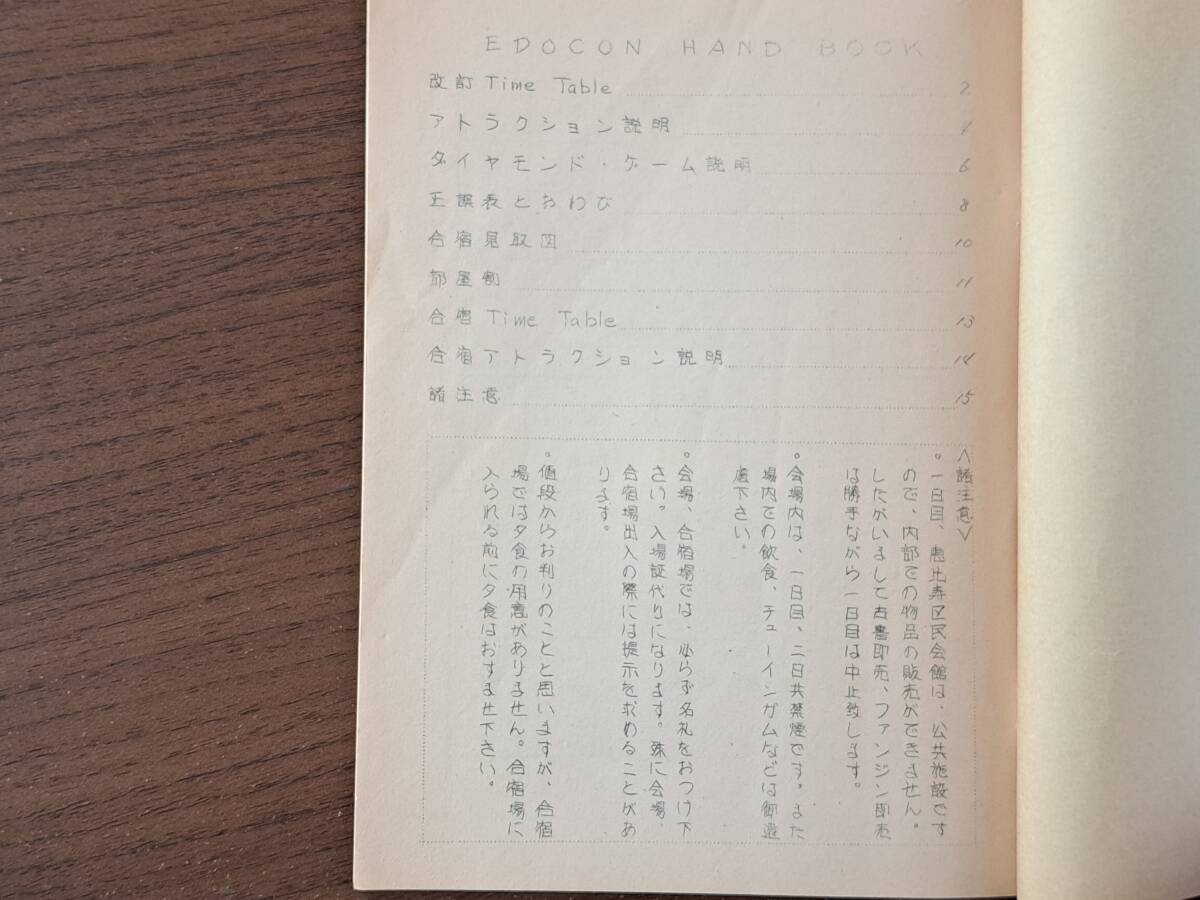 EDOCON HAND BOOK
改訂 Time Table 2
アトラクション説明 4
ダイヤモンド・ゲーム説明 6
正誤表とおわび 8
合宿見取図 10
部屋割 11
合宿 Time Table 13
合宿アトラクション説明 14
諸注意 15
<諸注意>
。一日目、恵比寿区民会館は、公共施設です
ので、内部での物品の販売ができません。
したがいまして古書即売、ファンジン即売
は勝手ながら一日目は中止致します。
。会場内は、一日目、二日共禁煙です。また
場内での飲食、チューインガムなどは御遠
慮下さい。
。会場、合宿場では、必らず名札をおつけ下
さい。入場証代りになります。殊に会場、
合宿場出入の際には提示を求めることがあ
ります。
。値段からお判りのことと思いますが、合宿
場では夕食の用意がありません。合宿場に
入られる前に夕食はおすませ下さい。